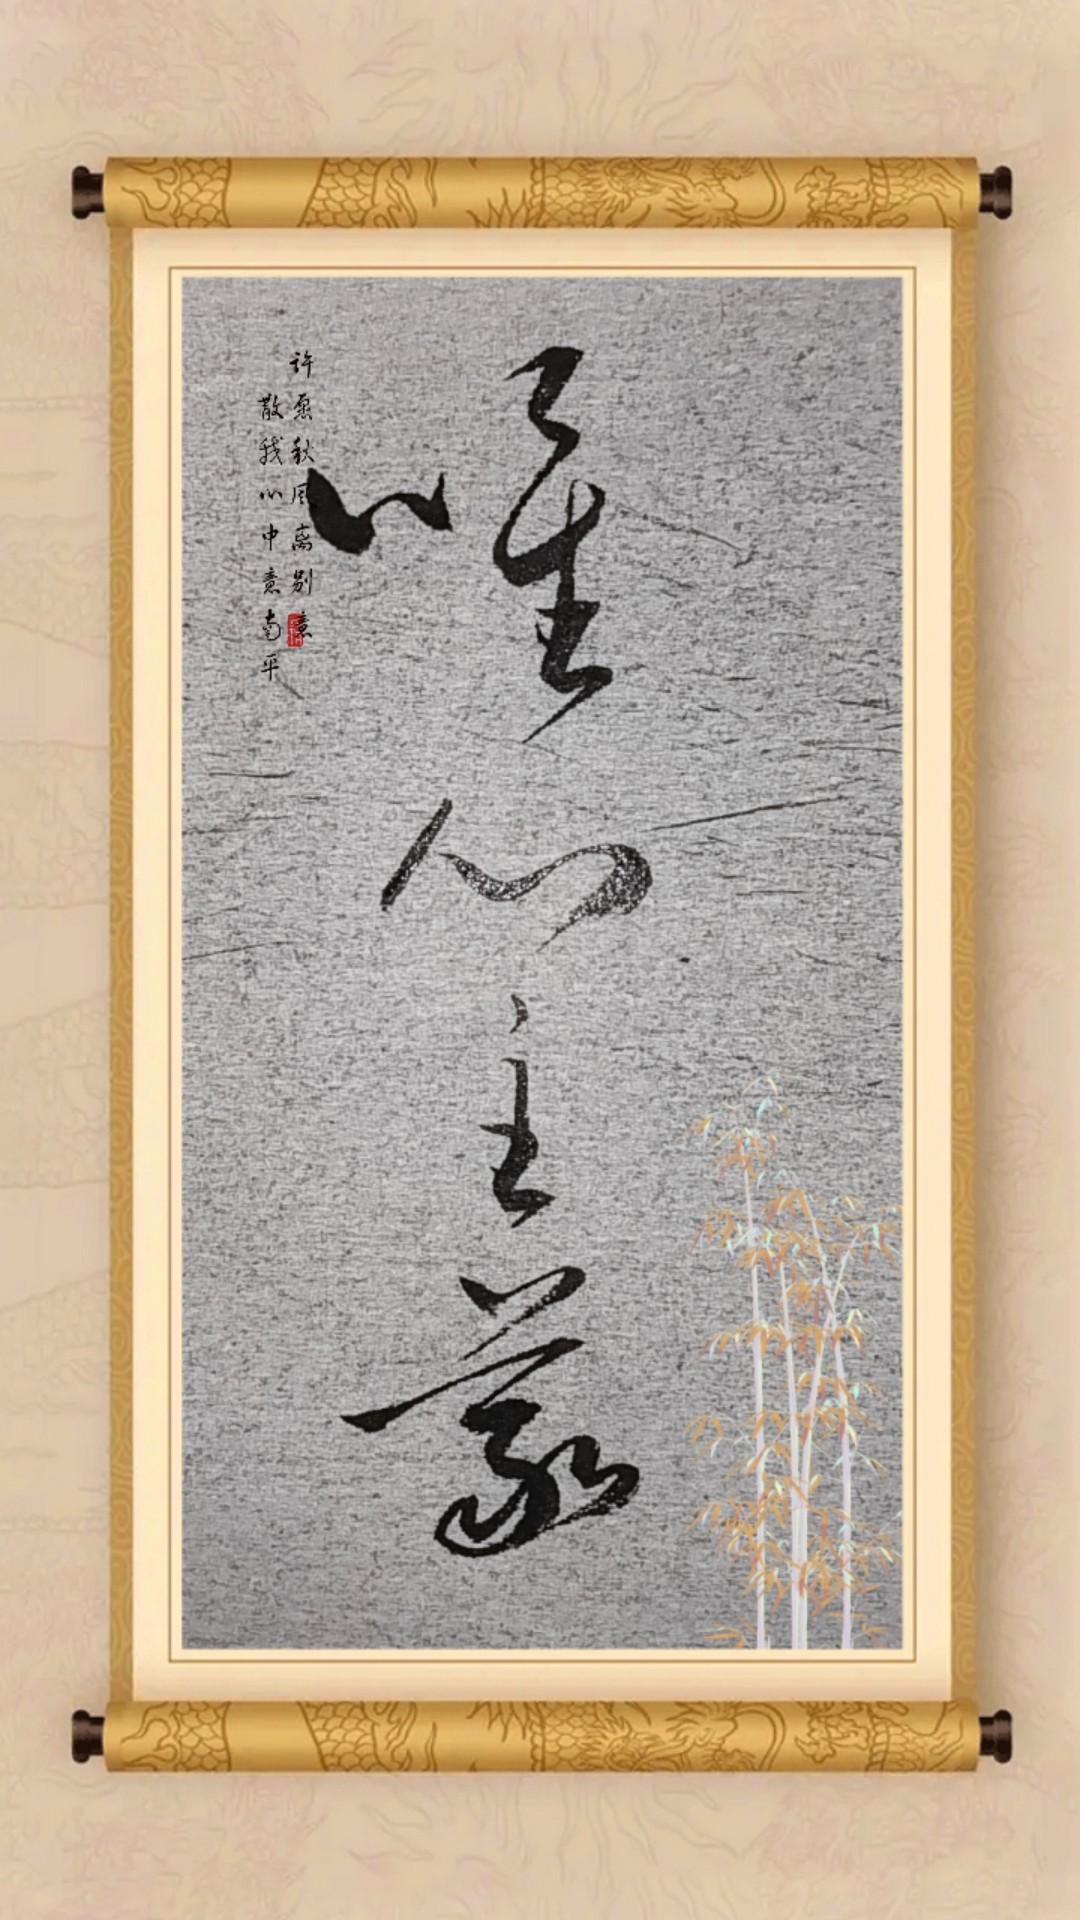 唯心主義
许愿秋风离别意
散我心中意南平